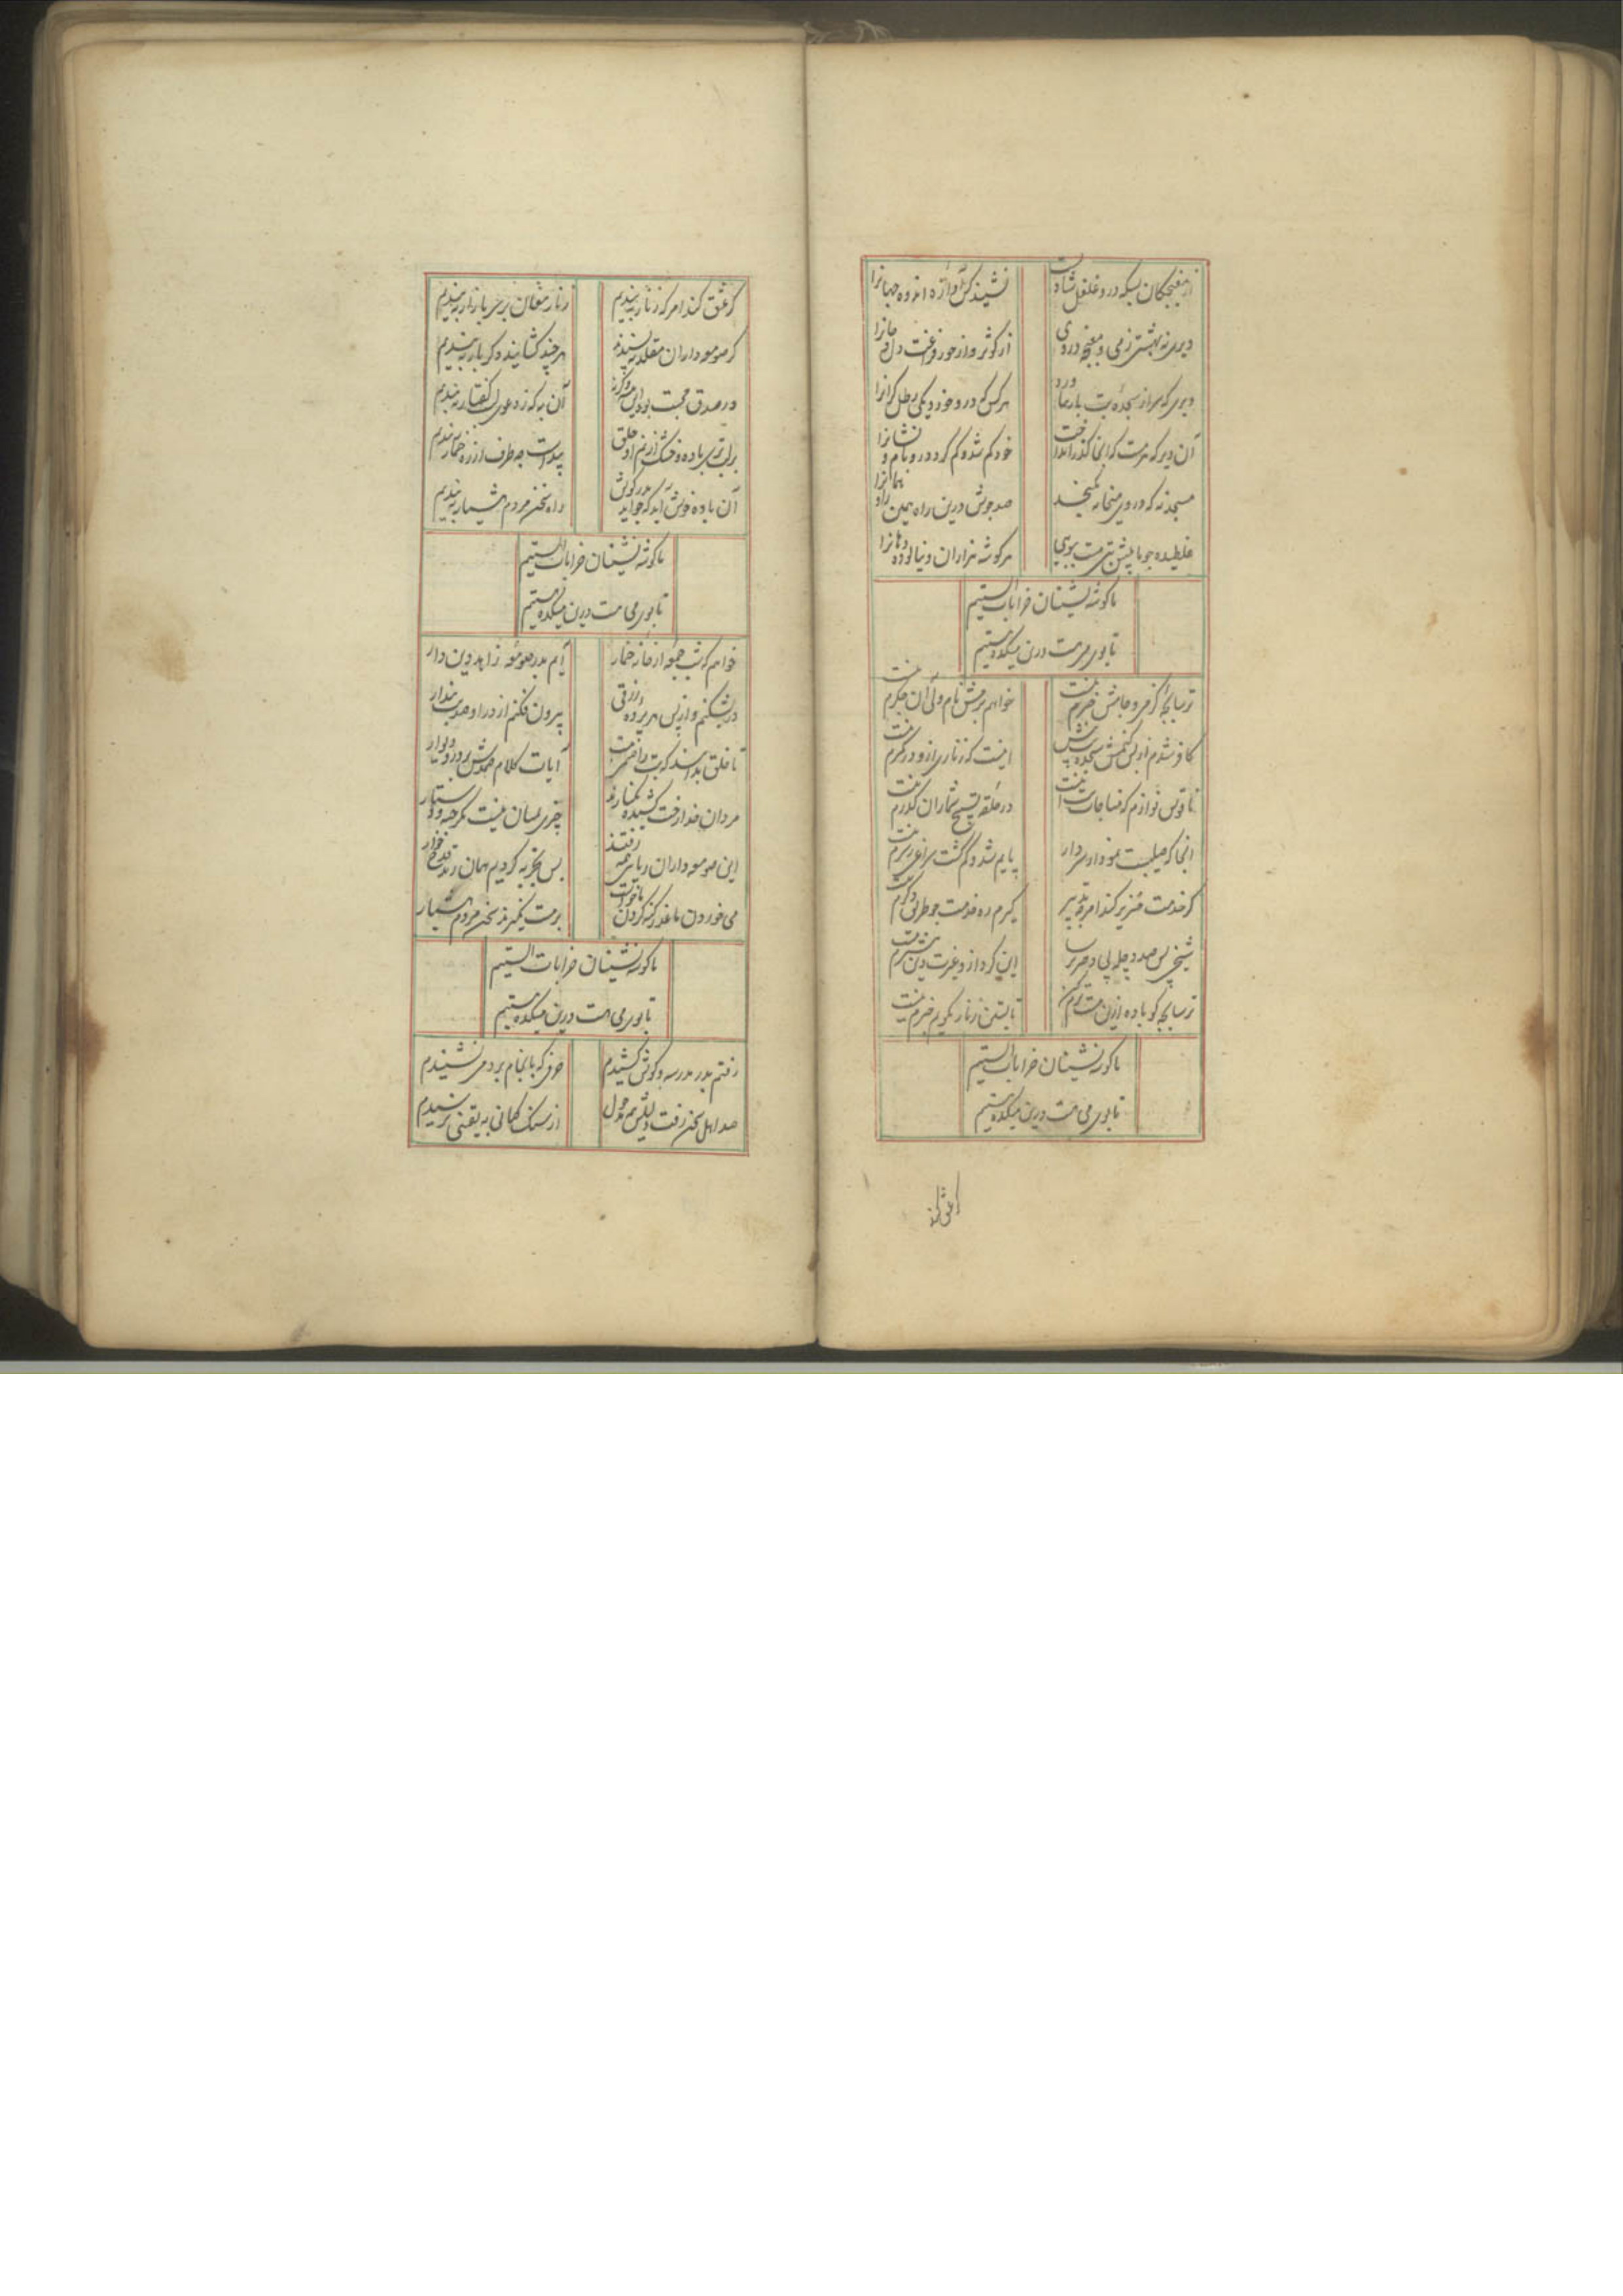 از مغبچکان بسکه درو غلغل شادیست نشنیده کس آوازهٔ اندوه جهانرا
دیری نه بهشتی ز می و مغبچه در وی از کوثر و از حور فراغت دل و جانرا
دیری که سر از سجدهٔ بت باز نیاورد هر کس که درو خورد یکی رطل کرانرا
آن دیر که هر مست که آنجا کذر انداخت خود کم شد و کم کرد درو نام و نشانرا
مسجد نه که در وی می و میخانه نکنجد صد جوش درین راه همین را و همانرا
غلطیده چو ما پیش بتی مست ببویی هر کوشه هزاران و نیالوده دهانرا
ما کوشه نشینان خرابات الستیم
تا بوی می هست درین میکده مستیم
ترسا بچهٔ کز می و جامش خبرم نیست خواهم برمش نام ولی آن جکرم نیست
کافر شدم از بس که کنمش سجده پیش اینست که زناری ازو در کمرم نیست
ناقوس نوازم که مناجات بت اینست در حلقهٔ تسبیح شماران کذرم نیست
آنجا که صلیبست نمودار سر دار پایم شد و کم کشت سراغ سرم نیست
کر خدمت خنزیر کند امر چه تدبیر کیرم ره خدمت چو طریق دکرم نیست
شیخی پس صد چله پی دختر ترسا این کرد ازو غیرت دین بیشترم نیست
ترسا بچه کو باده ازین مست ترم کن تا بستن زنار نکویم خبرم نیست
ما کوشه نشینان خرابات الستیم
تا بوی می هست درین میکده مستیم
کر عشق کند
کر عشق کند امر که زنار ببندیم زنار مغان بر سر بازار ببندیم
کر صومعه داران مقلد نپسندند هر چند کشایند دکر بار ببندیم
در صدق محبت بود این شرط وکرنه آن به که ز دعوی لب کفتار ببندیم
بر لب تری باده و خشک از نم او حلق پیداست چه طرف از در خمار ببندیم
آن باده خوش آید که چو آید بدر کوش راه سخن مردم هشیار ببندیم
ما کوشه نشینان خرابات الستیم
تا بوی می هست درین میکده مستیم
خواهم که شب جمعهٔ از خانهٔ خمار آیم بدر صومعهٔ زاهد دین دار
در بشکنم و از پس هر پردهٔ زرقی بیرون فکنم از در او صد بت پندار
تا خلق بدانند که بت را صنم هست آیات کلام صمدش بر در و دیوار
مردان خدا رخت کشیده بکنارند چیزی بمیان نیست مکر جبه و دستار
این صومعه داران ریایی همه زرقند بس تجربه کردیم همان رند قدح خوار
می خوردن ما عذر سخن کردن ما خواست بر مست نکیرند سخن مردم هشیار
ما کوشه نشینان خرابات الستیم
تا بوی می هست درین میکده مستیم
رفتم بدر مدرسه و کوش کشیدم حرفی که بانجام برد می نشنیدم
صد اهل سخن رفت و دلیلش همه مدلول از سنک کمانی به یقینی نرسیدم